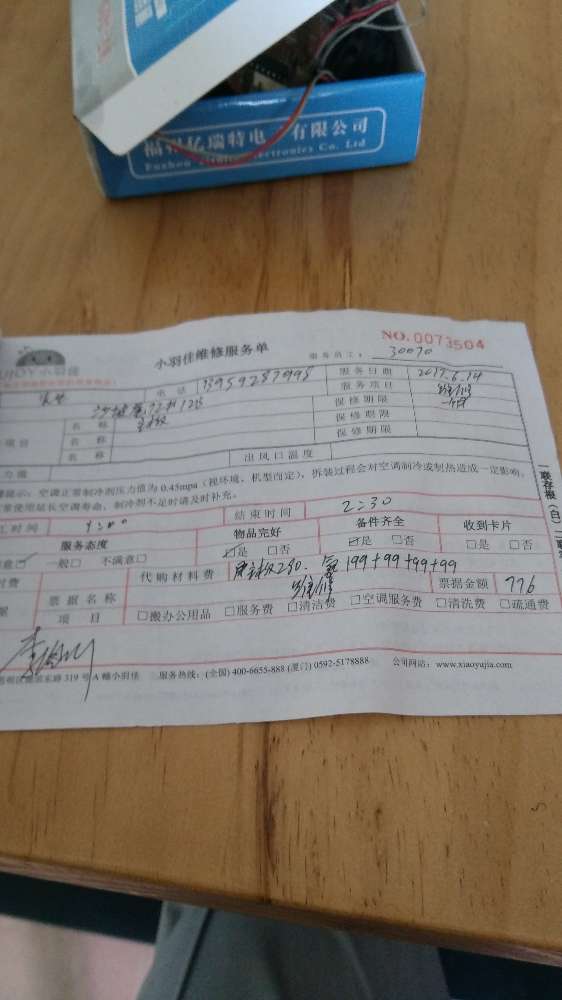 福州亿瑞特电 有限公司
Co. Ltd
小羽佳维修服务单
NO.0073504
服务员工: 30070
电话 服务日期 2017.6.14
服务项目 维修
项目 名称 主板 保修期限 一年
名称 保修期限
名称 保修期限
力值 出风口温度
提示:空调正常制冷剂压力值为0.45mpa(视环境、机型而定),拆装过程会对空调制冷或制热造成一定影响,
常使用延长空调寿命、制冷剂不足时请及时补充。
工时间 结束时间 2:30
服务态度 物品完好 备件齐全 收到卡片
意☑ 一般□ 不满意□ ☑是 □否 ☑是 □否 □是 □否
付费 代购材料费 主板280. 199+99+99+99
维修
票据名称 票据金额 776
项目 □搬办公用品 □服务费 □清洁费 □空调服务费 □清洗费 □疏通费
东路319号A幢小羽佳 服务热线:(全国)400-6655-888(厦门)0592-5178888 公司网站:www.xiaoyujia.com
一联存根(白)